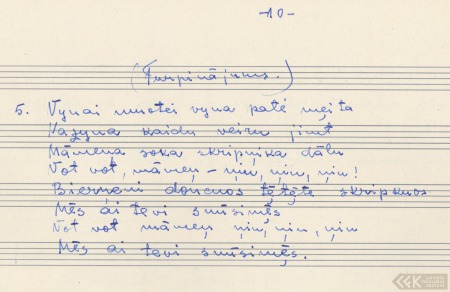 -10-
(Turpinājums.)
5. Vynai muotei vyna pate meita
Vajyna kaidu veiru jimt
Māmeņa soka skripnika dālu
Vot vot, māmeņ - ņiu, ņiu, ņiu!
Bierneni doncuos tētēte skripkuos
Mēs ai tevi smīsimēs
Vot vot māmeņ ņiu, ņiu, ņiu
Mēs ai tevi smīsimēs.